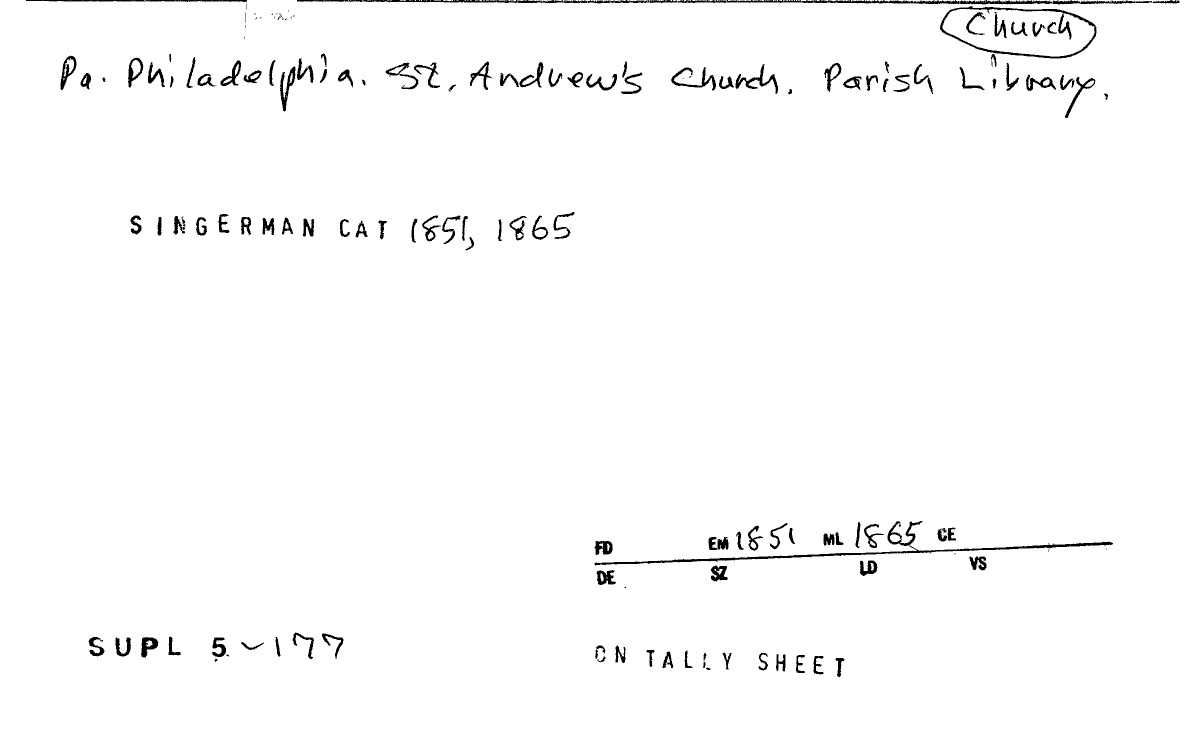 Church
Pa. Philadelphia. St. Andrew's Church. Parish Library.
SINGERMAN CAT 1851, 1865
FD EM 1851 ML 1865 CE
DE SZ LD VS
SUPL 5-177
ON TALLY SHEET